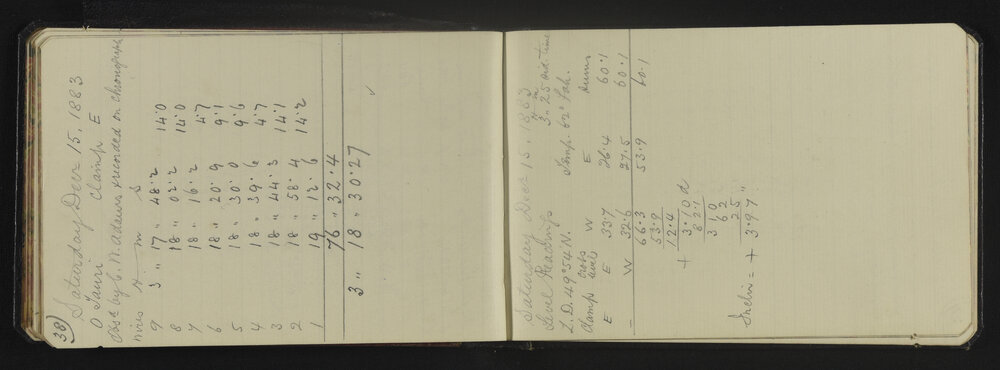 38)
Saturday Decr 15, 1883
O Tauri Clamp E
Obsd by C. W. Adams & recorded on Chronograph
Wires h m s
9 3 " 17 " 48.2 14.0
8 18 " 02.2 14.0
7 18 " 16.2 4.7
6 18 " 20.9 9.1
5 18 " 30.0 9.6
4 18 " 39.6 4.7
3 18 " 44.3 14.1
2 18 " 58.4 14.2
1 19 " 12.6
76 " 32.4
3 " 18 " 30.27
Saturday Decr 15, 1883
Level Readings h m 3.25 sid. time
Z.D. 49°54'N. Temp. 62° Fah.
Clamp Cross levels W E Sums
E E 33.7 26.4 60.1
" W 32.6 27.5 60.1
66.3 53.9 60.1
53.9
12.4
+ 3.10 d
8 2.1
310
62
25
Inclin = + 3.97"